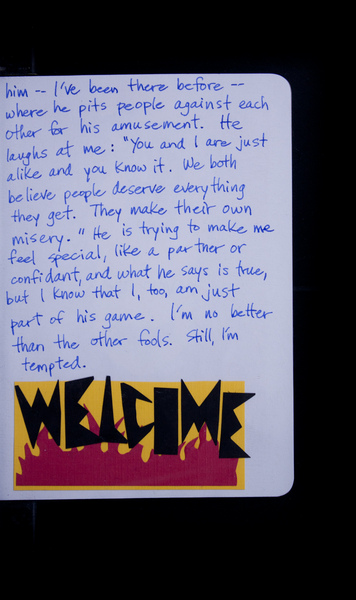 him -- I've been there before --
where he pits people against each
other for his amusement. He
laughs at me: "You and I are just
alike and you know it. We both
believe people deserve everything
they get. They make their own
misery." He is trying to make me
feel special, like a partner or
confidant, and what he says is true,
but I know that I, too, am just
part of his game. I'm no better
than the other fools. Still, I'm
tempted.
WELCOME